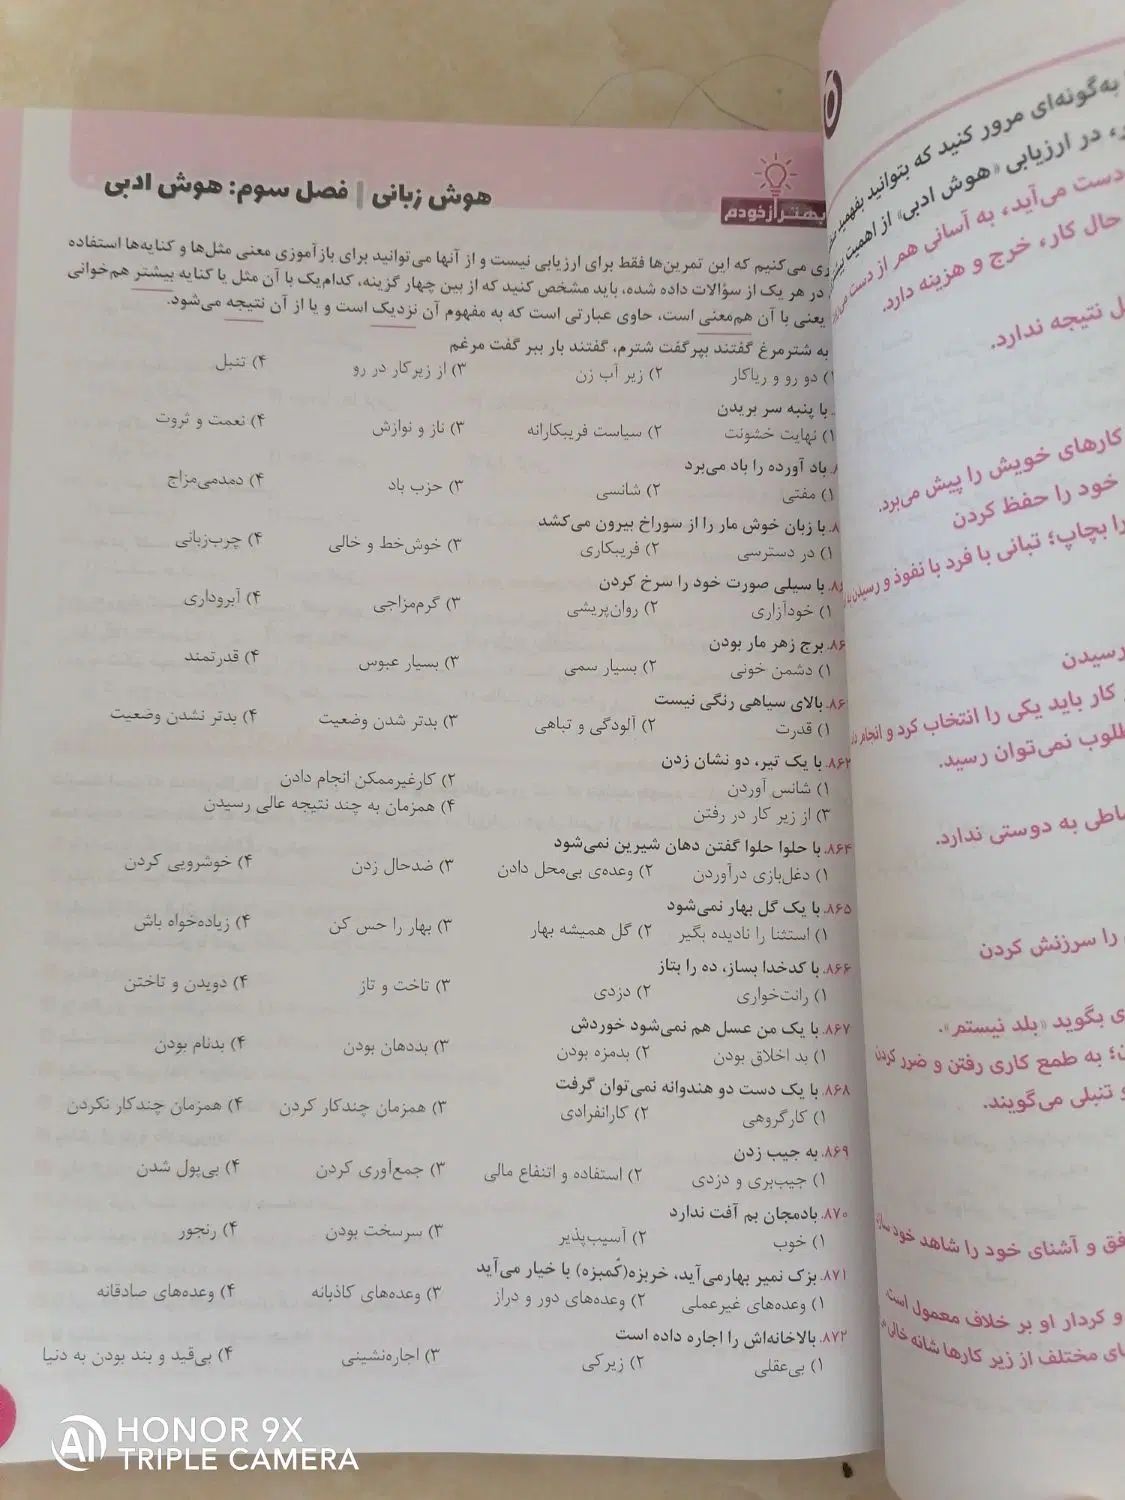 بهتر از خودم
هوش زبانی | فصل سوم: هوش ادبی
می‌کنیم که این تمرین‌ها فقط برای ارزیابی نیست و از آنها می‌توانید برای بازآموزی معنی مثل‌ها و کنایه‌ها استفاده
در هر یک از سؤالات داده شده، باید مشخص کنید که از بین چهار گزینه، کدام‌یک با آن مثل یا کنایه بیشتر هم‌خوانی
یعنی با آن هم‌معنی است، حاوی عبارتی است که به مفهوم آن نزدیک است و یا از آن نتیجه می‌شود.
به شترمرغ گفتند بپرگفت شترم، گفتند بار ببر گفت مرغم
۱) دو رو و ریاکار ۲) زیر آب زن ۳) از زیرکار در رو ۴) تنبل
با پنبه سر بریدن
۱) نهایت خشونت ۲) سیاست فریبکارانه ۳) ناز و نوازش ۴) نعمت و ثروت
باد آورده را باد می‌برد
۱) مفتی ۲) شانسی ۳) حزب باد ۴) دمدمی‌مزاج
با زبان خوش مار را از سوراخ بیرون می‌کشد
۱) در دسترسی ۲) فریبکاری ۳) خوش‌خط و خالی ۴) چرب‌زبانی
با سیلی صورت خود را سرخ کردن
۱) خودآزاری ۲) روان‌پریشی ۳) گرم‌مزاجی ۴) آبروداری
برج زهر مار بودن
۱) دشمن خونی ۲) بسیار سمی ۳) بسیار عبوس ۴) قدرتمند
بالای سیاهی رنگی نیست
۱) قدرت ۲) آلودگی و تباهی ۳) بدتر شدن وضعیت ۴) بدتر نشدن وضعیت
با یک تیر، دو نشان زدن
۱) شانس آوردن ۲) کارغیرممکن انجام دادن
۳) از زیر کار در رفتن ۴) همزمان به چند نتیجه عالی رسیدن
۸۶۴. با حلوا حلوا گفتن دهان شیرین نمی‌شود
۱) دغل‌بازی درآوردن ۲) وعده‌ی بی‌محل دادن ۳) ضدحال زدن ۴) خوشرویی کردن
۸۶۵. با یک گل بهار نمی‌شود
۱) استثنا را نادیده بگیر ۲) گل همیشه بهار ۳) بهار را حس کن ۴) زیاده‌خواه باش
۸۶۶. با کدخدا بساز، ده را بتاز
۱) رانت‌خواری ۲) دزدی ۳) تاخت و تاز ۴) دویدن و تاختن
۸۶۷. با یک من عسل هم نمی‌شود خوردش
۱) بد اخلاق بودن ۲) بدمزه بودن ۳) بددهان بودن ۴) بدنام بودن
۸۶۸. با یک دست دو هندوانه نمی‌توان گرفت
۱) کارگروهی ۲) کارانفرادی ۳) همزمان چندکار کردن ۴) همزمان چندکار نکردن
۸۶۹. به جیب زدن
۱) جیب‌بری و دزدی ۲) استفاده و انتفاع مالی ۳) جمع‌آوری کردن ۴) بی‌پول شدن
۸۷۰. بادمجان بم آفت ندارد
۱) خوب ۲) آسیب‌پذیر ۳) سرسخت بودن ۴) رنجور
۸۷۱. بزک نمیر بهارمی‌آید، خربزه(کُمبزه) با خیار می‌آید
۱) وعده‌های غیرعملی ۲) وعده‌های دور و دراز ۳) وعده‌های کاذبانه ۴) وعده‌های صادقانه
۸۷۲. بالاخانه‌اش را اجاره داده است
۱) بی‌عقلی ۲) زیرکی ۳) اجاره‌نشینی ۴) بی‌قید و بند بودن به دنیا
به‌گونه‌ای مرور کنید که بتوانید بفهمید
در ارزیابی «هوش ادبی» از اهمیت
دست می‌آید، به آسانی هم از دست
حال کار، خرج و هزینه دارد.
نتیجه ندارد.
کارهای خویش را پیش می‌برد.
خود را حفظ کردن
را بچاپ؛ تبانی با فرد با نفوذ و رسیدن
رسیدن
کار باید یکی را انتخاب کرد و انجام
نمی‌توان رسید.
به دوستی ندارد.
را سرزنش کردن
بگوید «بلد نیستم».
به طمع کاری رفتن و ضرر کردن
و تنبلی می‌گویند.
و آشنای خود را شاهد خود
و کردار او بر خلاف معمول است
مختلف از زیر کارها شانه خالی
HONOR 9X
TRIPLE CAMERA
AI